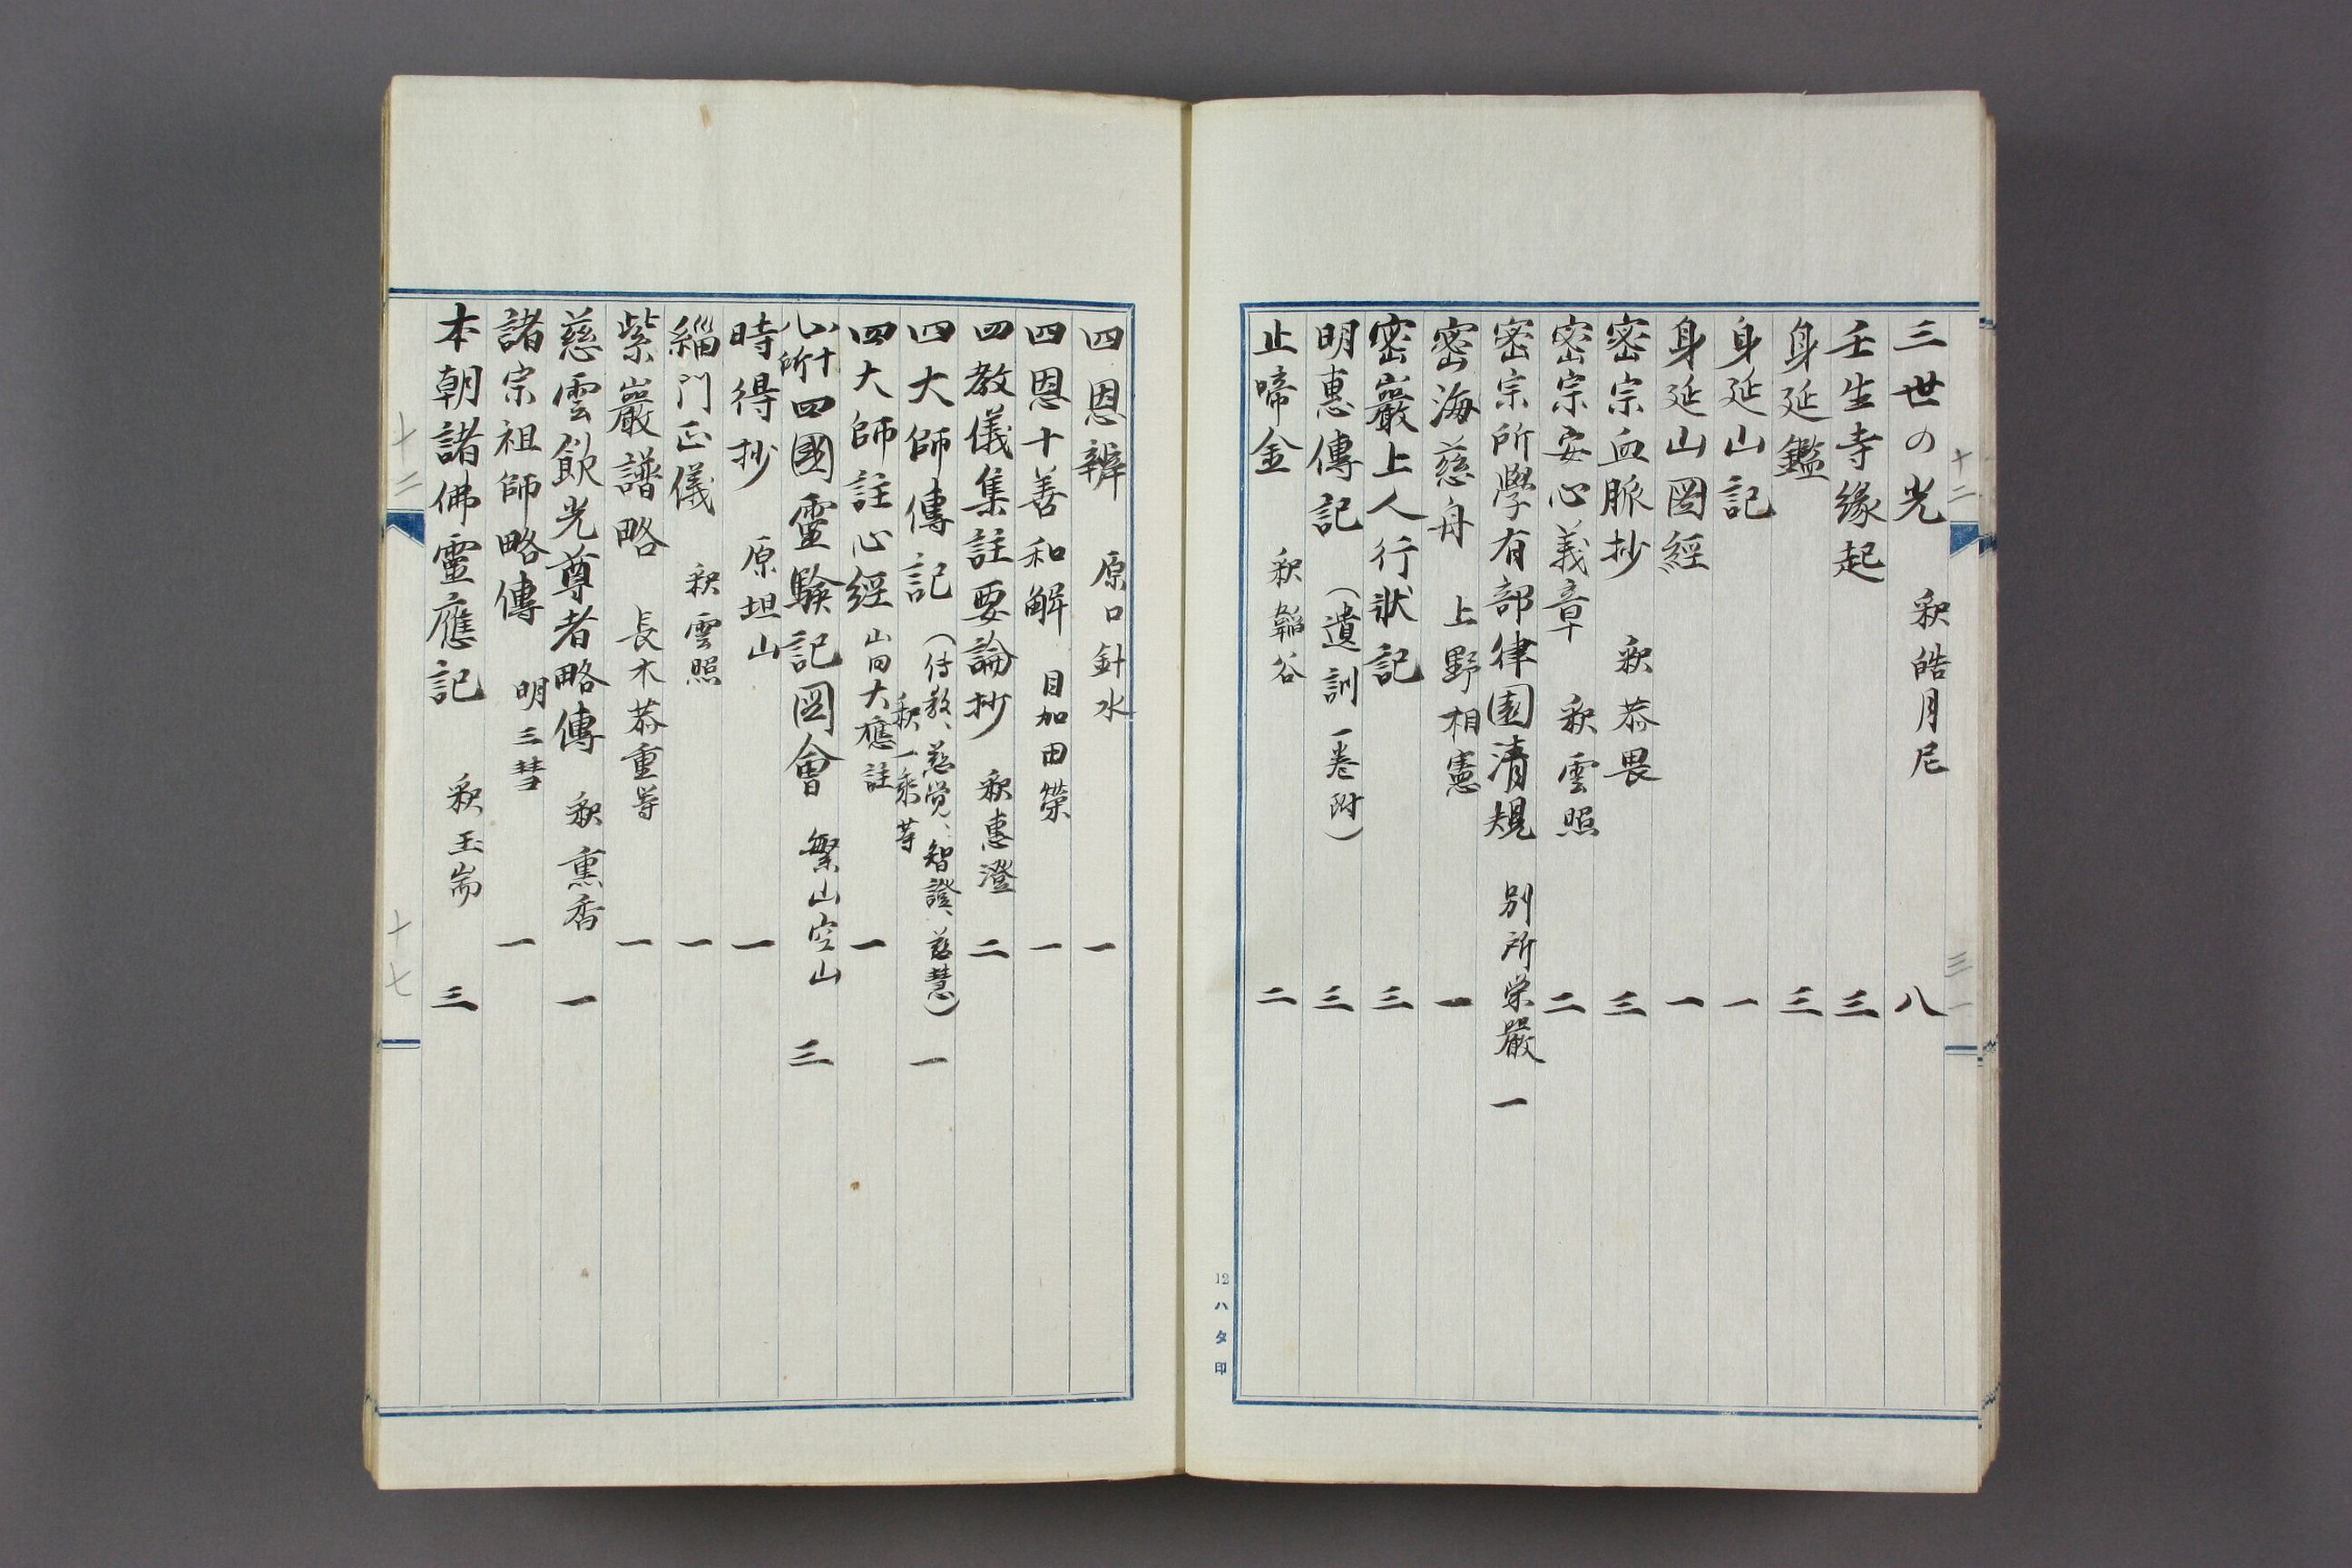 十二
三一
三世の光 釈皓月尼 八
壬生寺縁起 三
身延鑑 三
身延山記 一
身延山図經 一
密宗血脈抄 釈恭畏 三
密宗安心義章 釈雲照 二
密宗所學有部律園清規 別所栄嚴 一
密海慈舟 上野相憲 一
密嚴上人行狀記 三
明惠傳記 (遺訓一卷附) 三
止啼金 釈韜谷 二
12ハタ印
四恩辨 原口針水 一
四恩十善和解 目加田榮 一
四教儀集註要論抄 釈惠澄 二
四大師傳記 (傳教、慈覚、智證、慈慧) 釈一乘等 一
四大師註心經 山田大應註 一
四國靈験記図會 繁山空山 三
心所十
時得抄 原坦山 一
緇門正儀 釈雲照 一
紫巖譜略 長木恭重等 一
慈雲飲光尊者略傳 釈熏香 一
諸宗祖師略傳 明三彗 一
本朝諸佛靈應記 釈玉耑 三
十三
十七